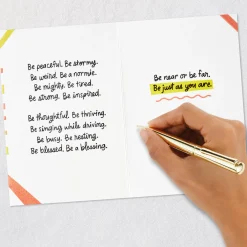 Be peaceful. Be stormy.
Be weird. Be a normie.
Be mighty. Be tired.
Be strong. Be inspired.
Be thoughtful. Be thriving.
Be singing while driving.
Be busy. Be resting.
Be blessed. Be a blessing.
Be near or be far,
Be just as you are.